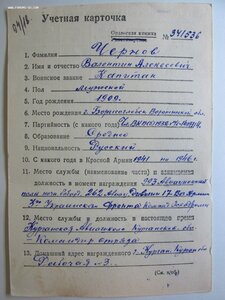 04/13.
Учетная карточка
Орденская книжка
№ 341536
1. Фамилия Чернов
2. Имя и отчество Валентин Алексеевич
3. Воинское звание Капитан
4. Пол мужской
5. Год рождения 1909.
6. Место рождения г. Борисоглебск Воронежской обл.
7. Партийность (с какого года) Чл. ВКП(б)
8. Образование Среднее
9. Национальность Русский
10. С какого года в Красной Армии 1941 по 1946 г.
11. Место службы (наименование части) и занимаемая
должность в момент награждения
полк ночн. 17 Возд. Армии
3го Украинского Фронта
12. Место службы и должность в настоящее время
Курганской обл.
Командир отряда
13. Домашний адрес награжденного г. Курган,
Рабочая
(См. н/об)